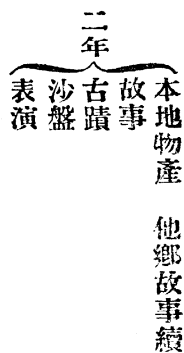 二年
本地物產　他鄉故事續
故事
古蹟
沙盤
表演